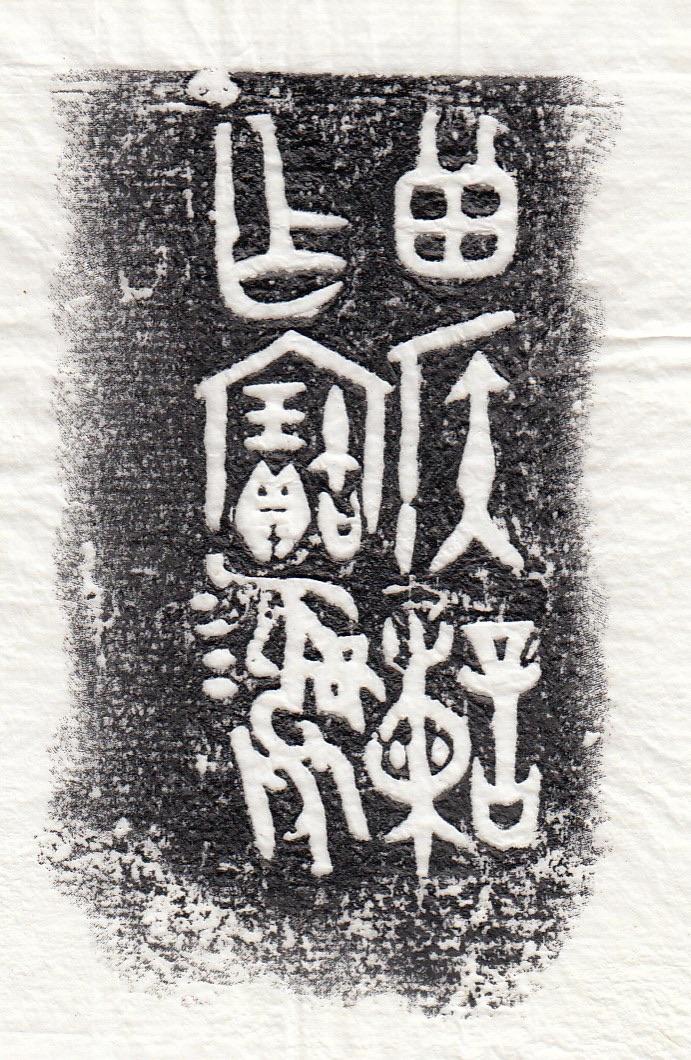 曾侯諫
乍寶彝